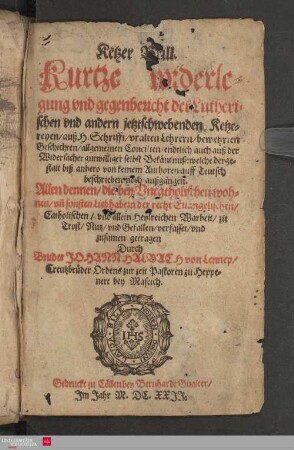 Ketzer
Kurtze
gung vnd gegenbericht der Lutheri-
schen vnd andern jetztschwebenden Ketze-
reyen/auß H. Schrifft/vralten Lehrern/bewehrten
Geschichten/allgemeinen Concilien/endtlich auch auß der
Widersacher
stalt biß anhero von keinem Authoren auff Teutsch
beschrieben noch außgangen.
Allen dennen/die bey Vncatholischen woh-
nen/vñ sonsten Liebhabern der recht Euangelischen/
Catholischen/vnd allein Heylreichen Warheit/zu
Trost/Nutz/vnd Gefallen/verfasset/vnd
zusamen getragen
Durch
Bruder JOHANN HALBACH von Lennep/
Creutzbrüder Ordens zur zeit Pastoren zu
bey
IHS
Gedruckt zu Cöllen bey Bernhardt Gualter/
Im Jahr M. DC. XXII.